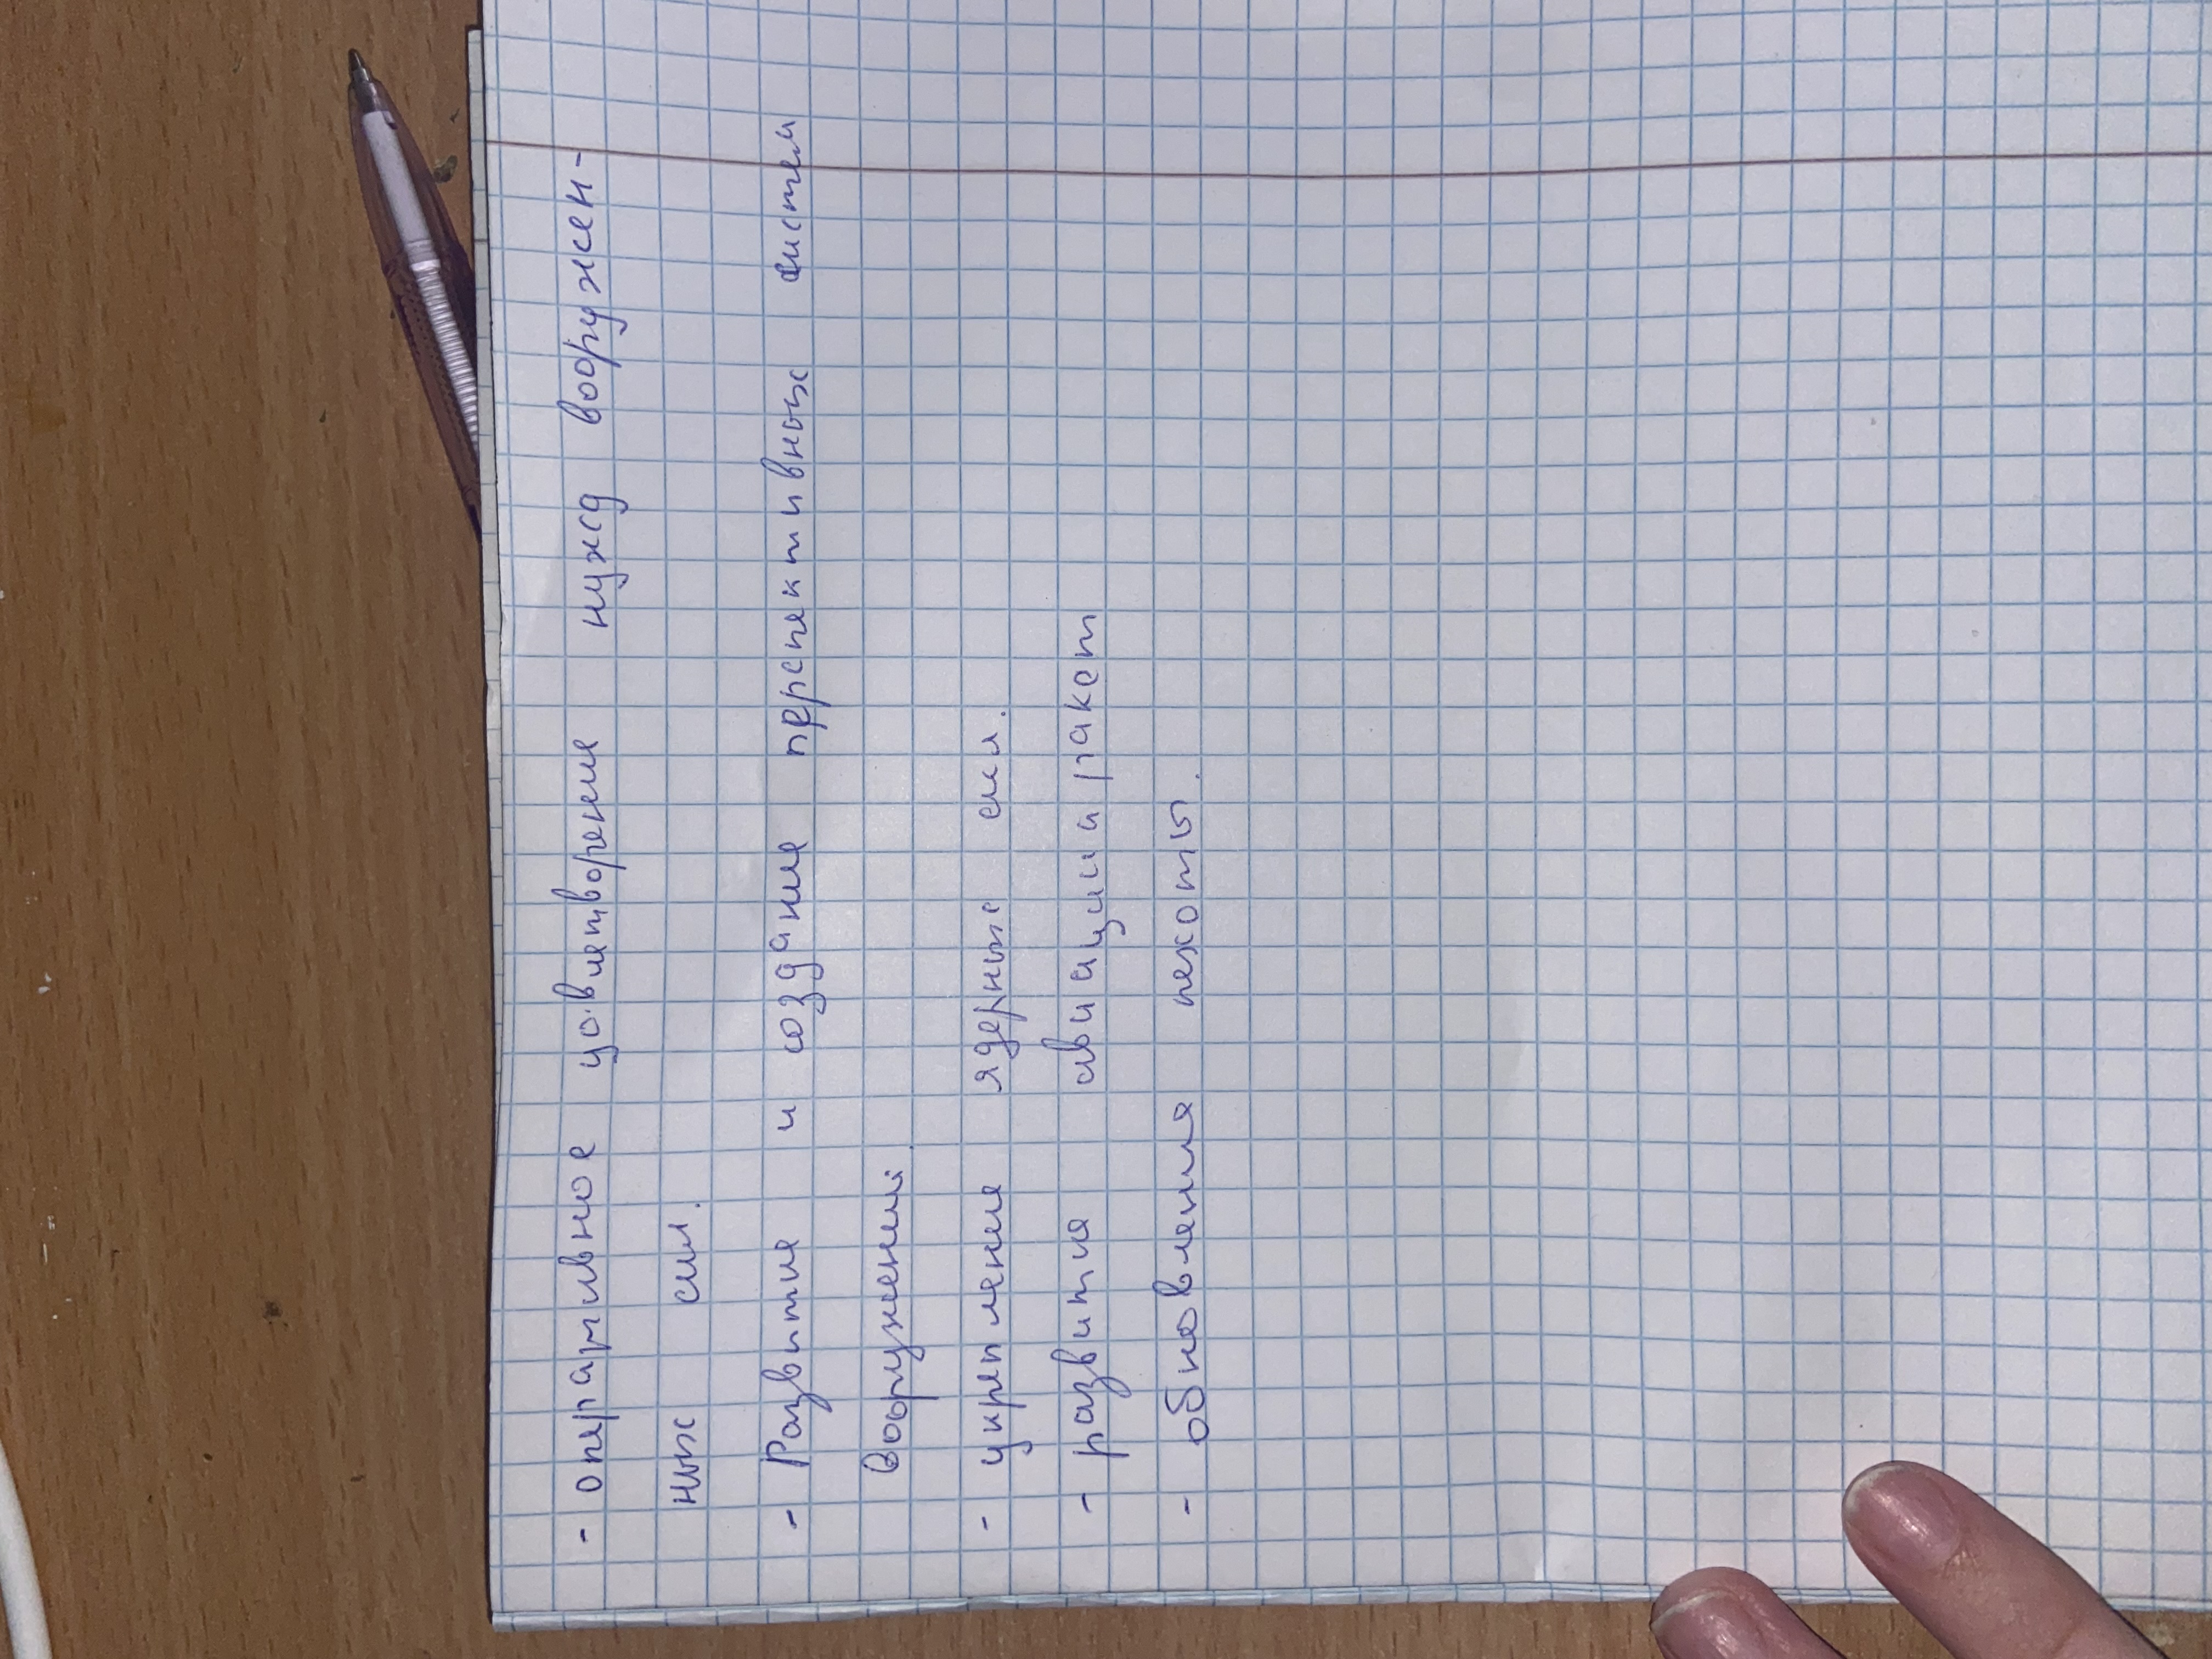 - оперативное уовлетворение нужд вооружен-
ных сил.
- Развитие и создание перспективных систем
вооружений.
- укрепление ядерные сил.
- развития авиации ракет
- обновления пехоты.